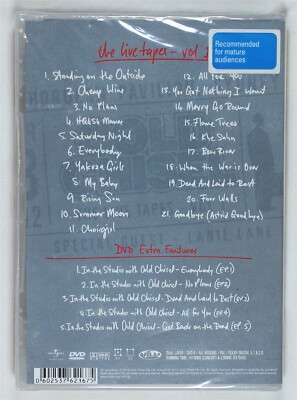 the live tapes - vol 1
Recommended
for mature
audiences
1. Standing on the Outside
2. Cheap Wine
3. No Plans
4. HQ454 Monroe
5. Saturday Night
6. Everybody
7. Yakuza Girls
8. My Baby
9. Rising Sun
10. Summer Moon
11. Choirgirl
12. All For You
13. You Got Nothing I Want
14. Merry Go Round
15. Flame Trees
16. Khe Sanh
17. Bow River
18. When the War is Over
19. Dead And Laid to Rest
20. Four Walls
21. Goodbye (Astrid Goodbye)
SPECIAL GUEST: LANIE LANE
DVD Extra Features
1. In the Studio with Cold Chisel - Everybody (EP1)
2. In the Studio with Cold Chisel - No Plans (EP2)
3. In the Studio with Cold Chisel - Dead And Laid to Rest (EP3)
4. In the Studio with Cold Chisel - All for You (EP4)
5. In the Studio with Cold Chisel - Get Back on the Road (EP.5)
DVD
0 602537 621675